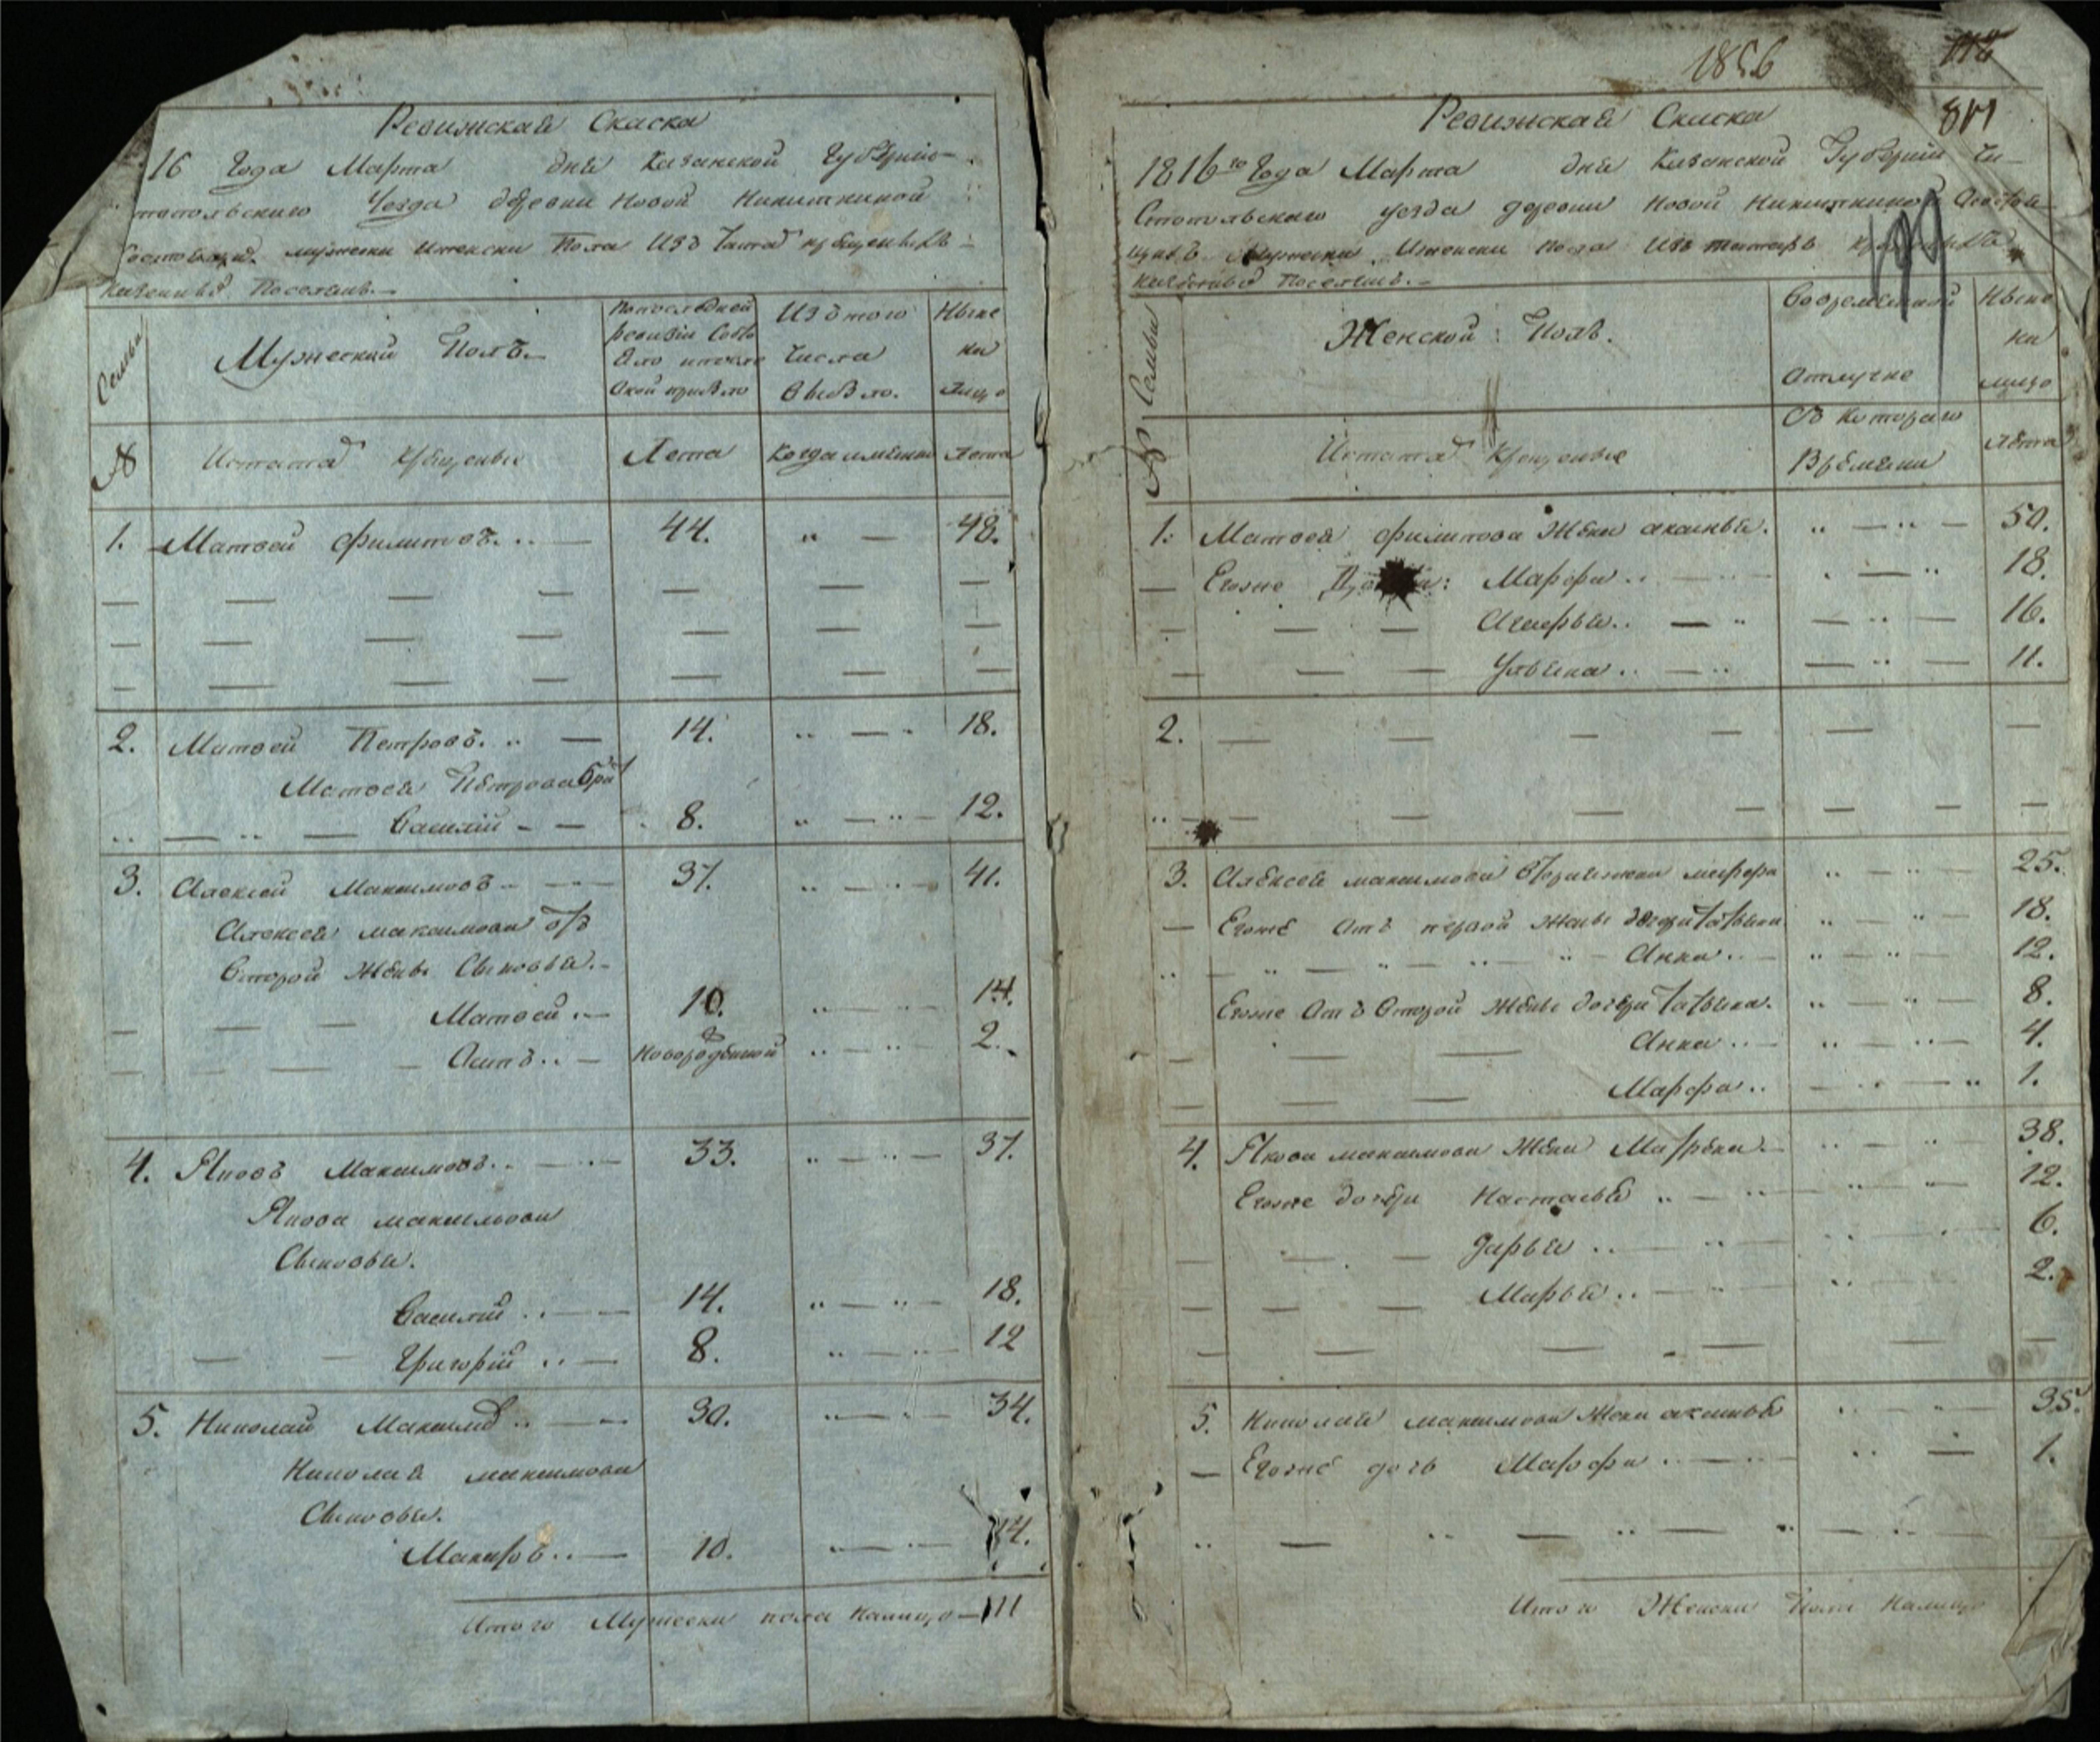 Ревижская Скаска
16 Года Марта дня Казанской Губернии
топольскаго Уезда деревни Новой Никиткиной
мужеска и женска Пола Изъ татаръ крещеныхъ
Поселянъ.
Семьи
Мужеский Полъ.
По последней ревизии состояло и после оной прибыло
Изъ того Числа выбыло.
Ныне на лицо
№
Исъ татаръ крещеные
Лета
Когда именно
Лета
1. Матвей Филиповъ. 44. 48.
2. Матвей Петровъ. 14. 18.
Матвея Петрова брат
Василий 8. 12.
3. Алексей Максимовъ 37. 41.
Алексея Максимова отъ
Второй Жены Сыновья.
Матвей 10. 14.
Осипъ новорожденой 2.
4. Яковъ Максимовъ. 33. 37.
Якова максимова
Сыновья.
Василий 14. 18.
Григорий 8. 12
5. Николай Максимов 30. 34.
Николая максимова
Сыновья.
Макаръ 10. 14.
Итого Мужеска пола налицо 111
1856
811
Ревижская Скаска
1816го Года Марта дня Казанской Губернии Чи-
стопольскаго уезда деревни Новой Никиткиной
мужеска и женска пола Изъ татаръ
Поселянъ.
Семьи
Женской Полъ.
Во временной Отлучке
Ныне на лицо
№
Исътатаръ Крещеные
Съ котораго Времени
лета
1. Матвея филипова Жена аксинья. 50.
Егоже Марфа 18.
16.
Ульяна 11.
2.
3. Алексея максимова вторая жена марфа 25.
Егоже отъ первой жены дочери татьяна 18.
Анна 12.
Егоже Отъ Второй жены дочери татьяна. 8.
Анна 4.
Марфа 1.
4. Якова максимова Жена Матрена. 38.
Егоже дочери Настасья 12.
Дарья 6.
Марья 2.
5. Николая максимова Жена аксинья 35.
Егоже дочь Марфа 1.
Итого Женска Пола Налицо